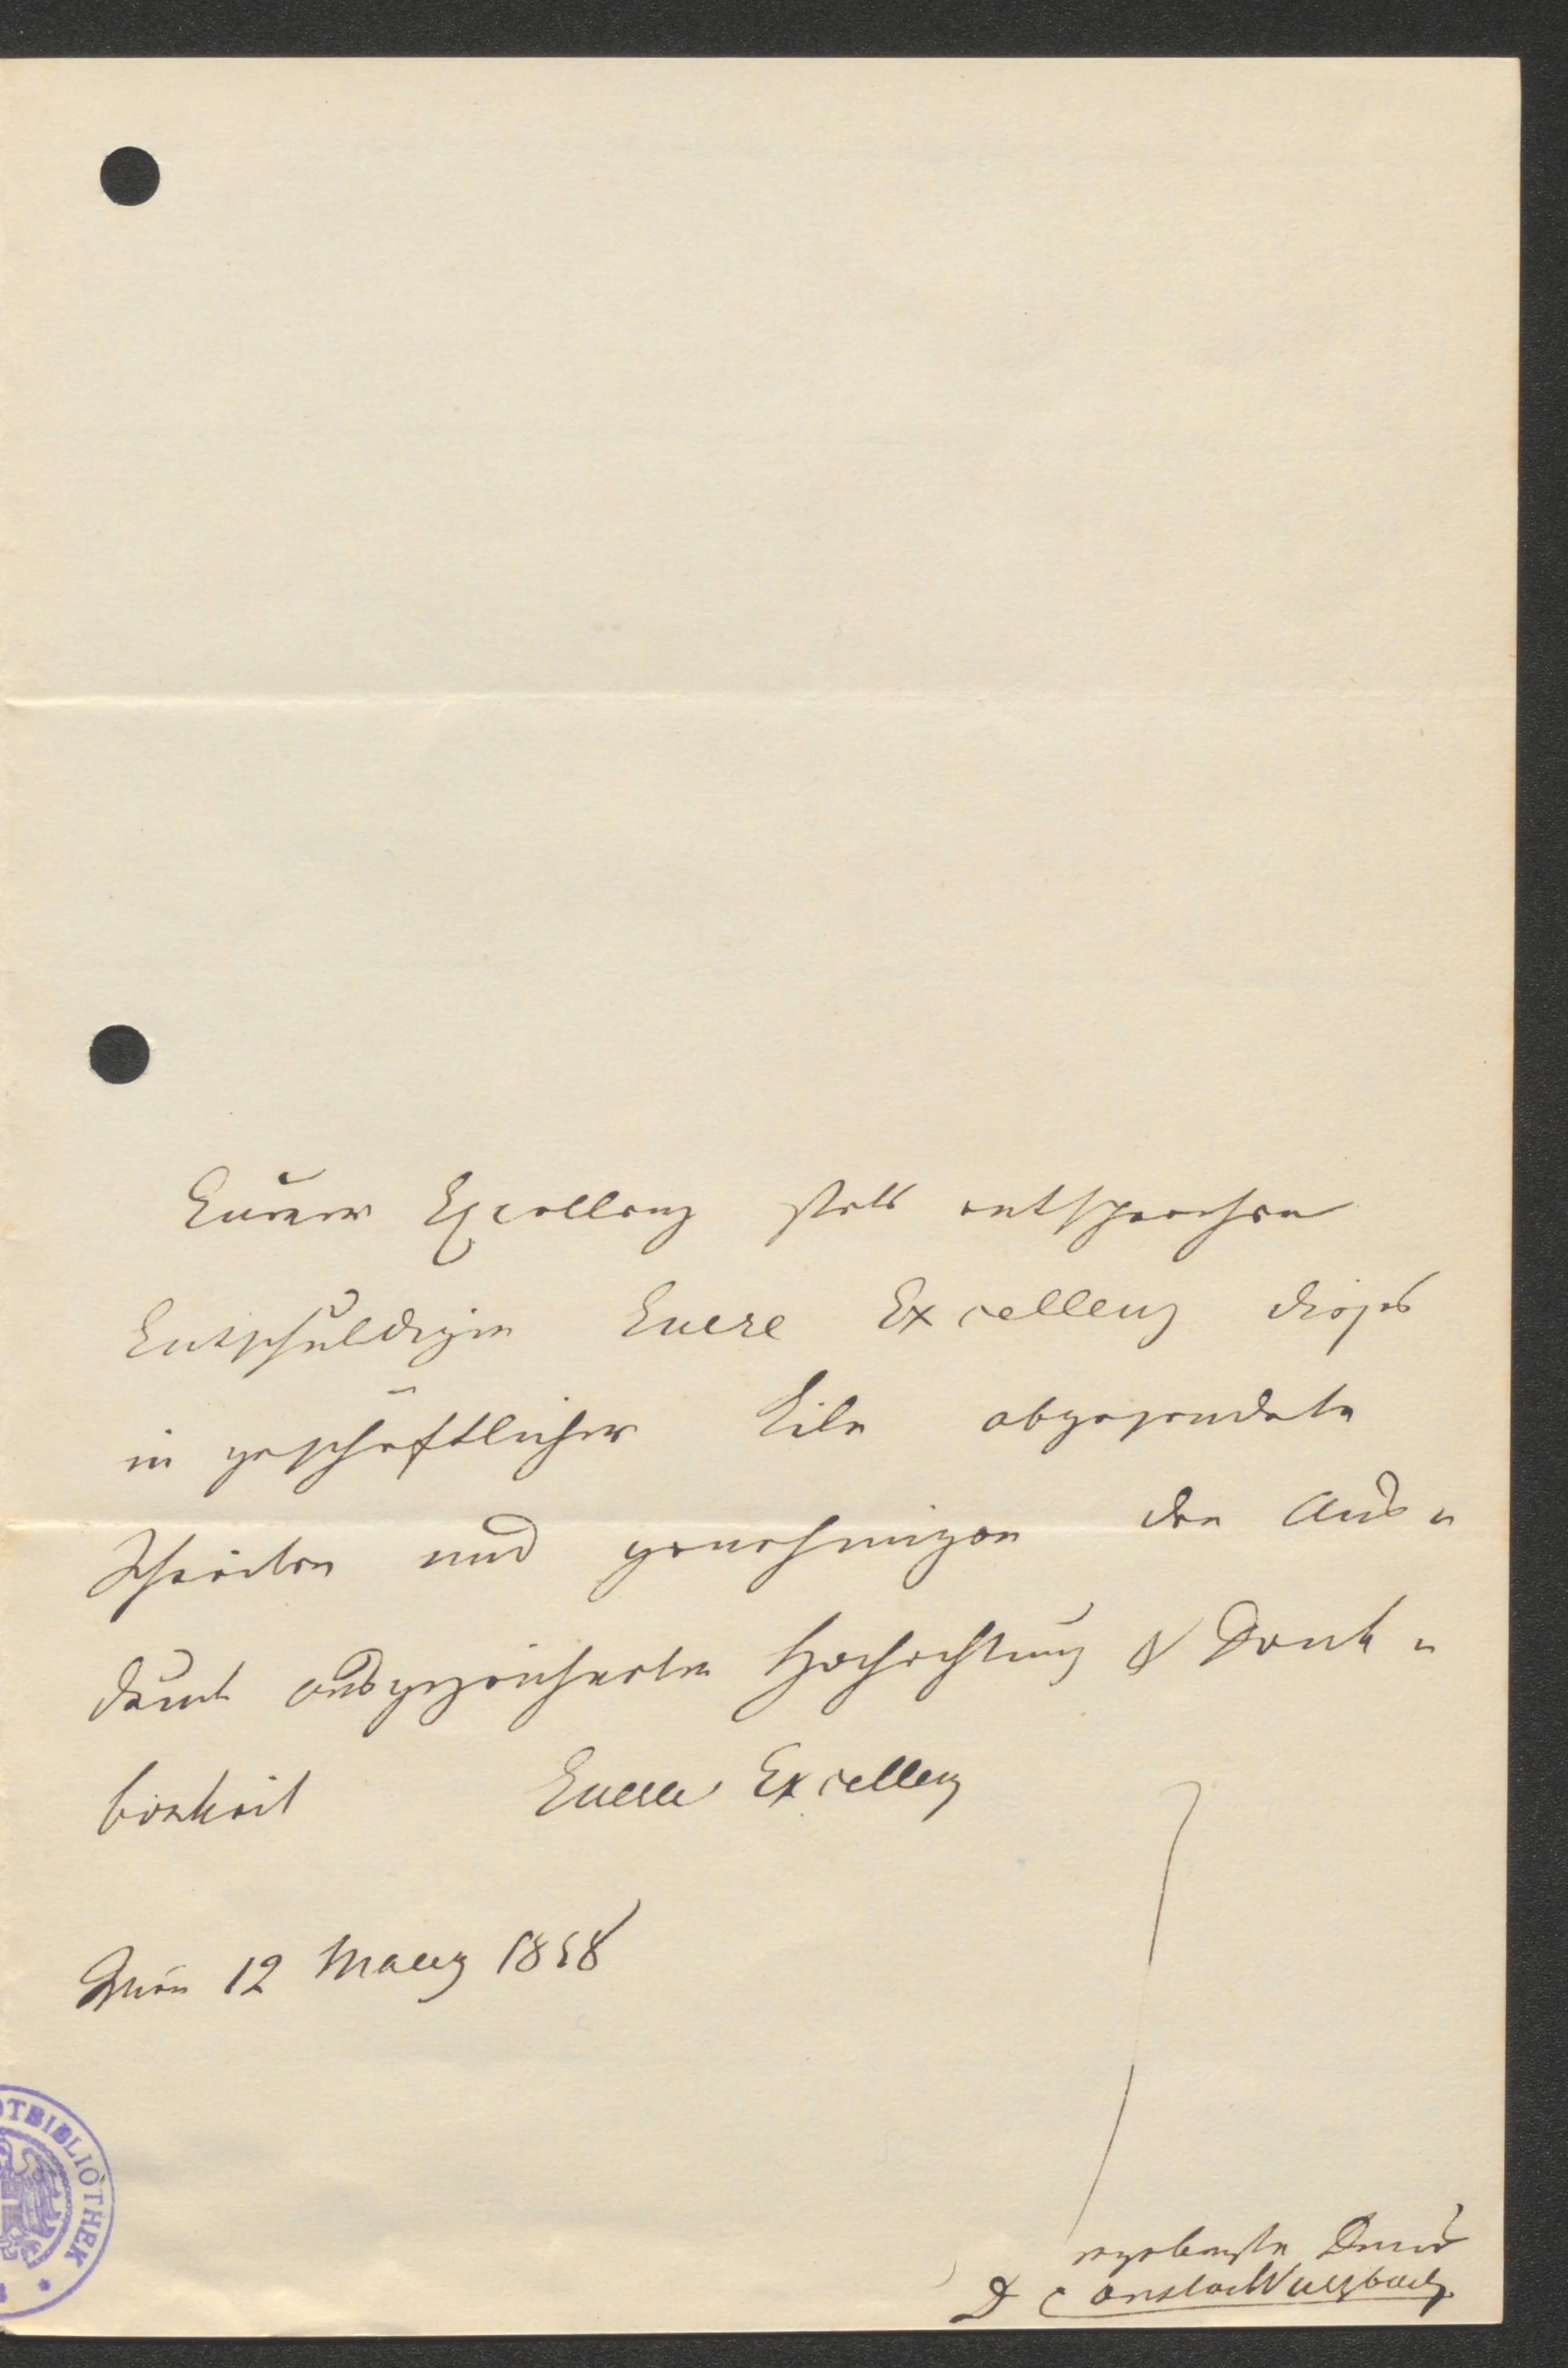 Eurer Excellenz stets entsprechen
Entschuldigen Euere Excellenz dieses
in geschäftlicher Eile abgesendete
Schreiben und genehmigen den Aus-
druck ausgezeichneter Hochachtung & Dank-
barkeit Euerer Excellenz
Wien 12 Maerz 1858
ergebenster Diener
D Constant Wurzbach
OTBIBLIOTHEK